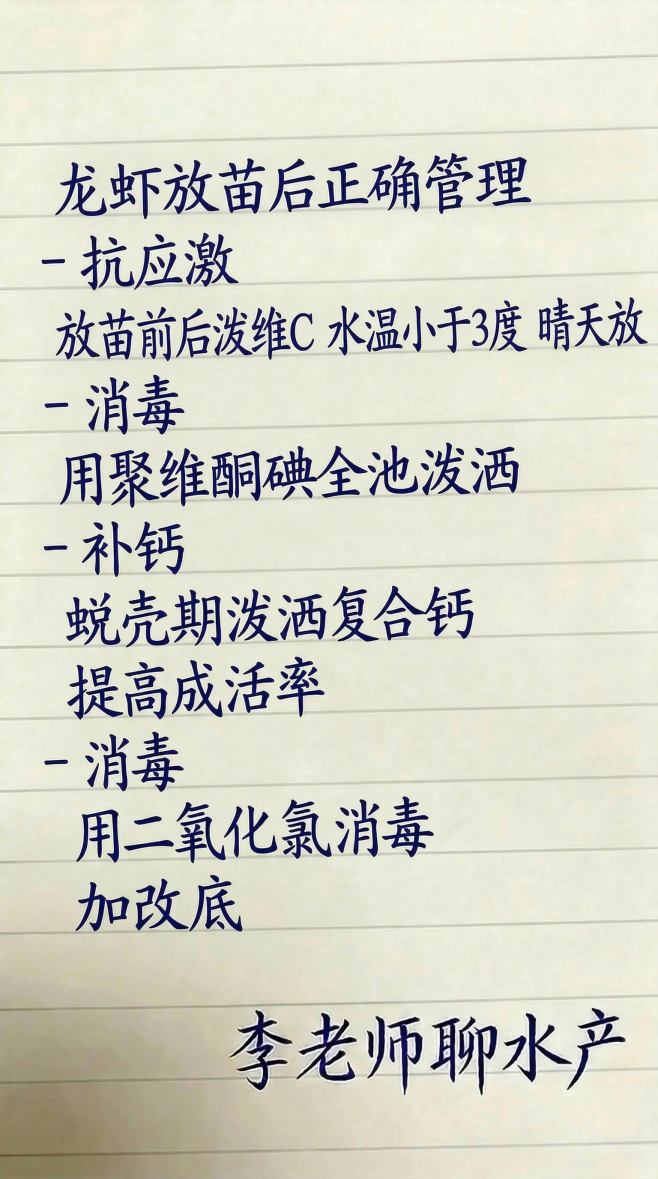 龙虾放苗后正确管理
- 抗应激
放苗前后泼维C 水温小于3度 晴天放
- 消毒
用聚维酮碘全池泼洒
- 补钙
蜕壳期泼洒复合钙
提高成活率
- 消毒
用二氧化氯消毒
加改底
李老师聊水产